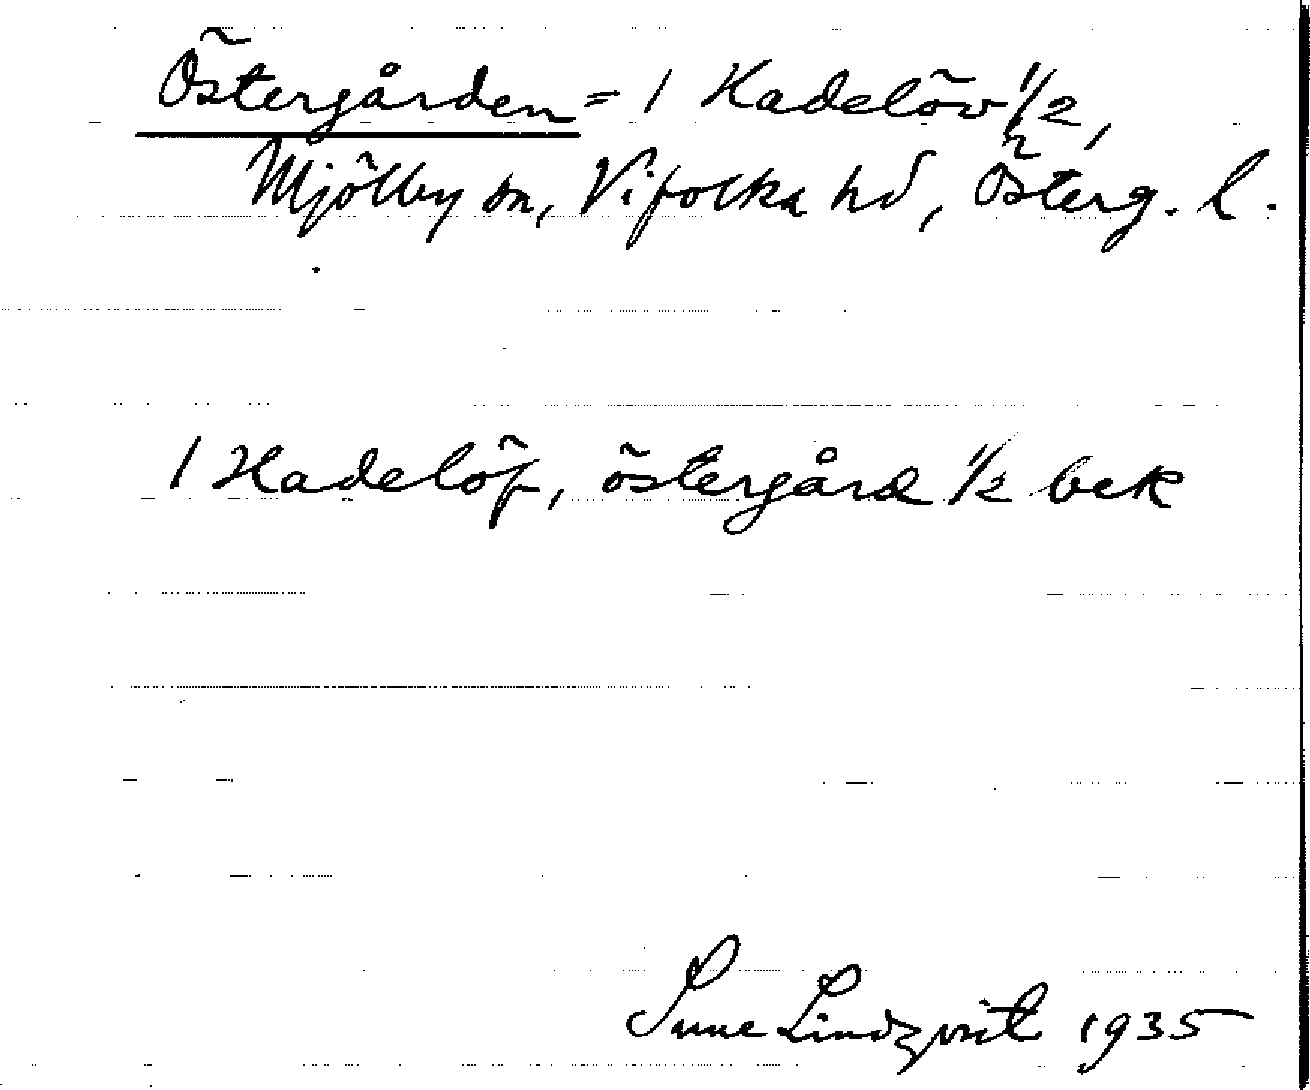 Östergården = 1 Kadelöv 1/2,
Mjölby sn, Vifolka hd, Österg. l.
1 Kadelöf, östergård 1/2 bek
Sune Lindqvist 1935